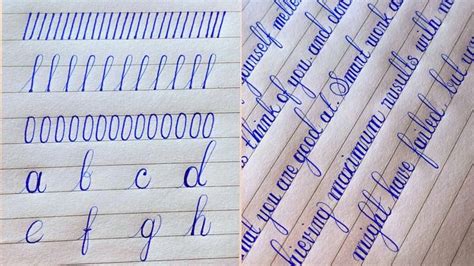 a b c d
e f g h
yourself
think of you. and don
you are good at. Smart work
hieving maximum results with m
might have failed, but